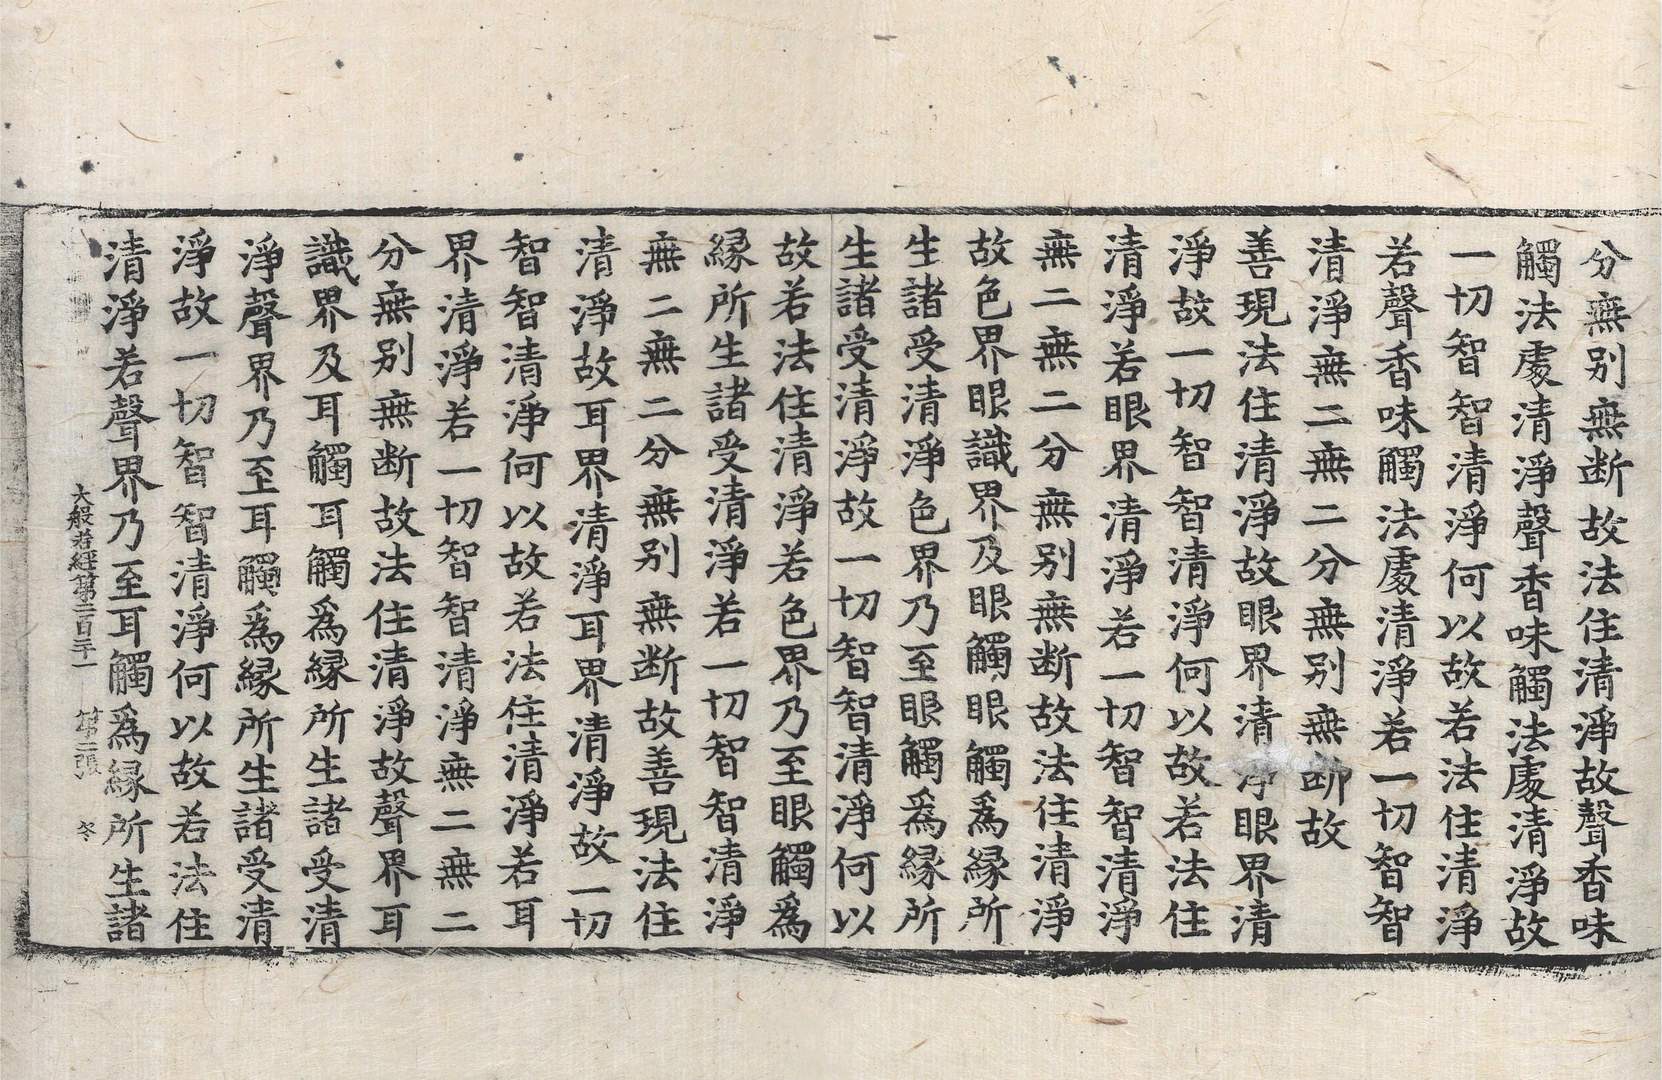 分無别無断故法住清淨故聲香味
觸法處清淨聲香味觸法處清淨故
一切智智清淨何以故若法住清淨
若聲香味觸法處清淨若一切智智
清淨無二無二分無别無断故
善現法住清淨故眼界清淨眼界清
淨故一切智智清淨何以故若法住
清淨若眼界清淨若一切智智清淨
無二無二分無别無断故法住清淨
故色界眼識界及眼觸眼觸爲緣所
生諸受清淨色界乃至眼觸爲緣所
生諸受清淨故一切智智清淨何以
故若法住清淨若色界乃至眼觸爲
緣所生諸受清淨若一切智智清淨
無二無二分無别無断故善現法住
清淨故耳界清淨耳界清淨故一切
智智清淨何以故若法住清淨若耳
界清淨若一切智智清淨無二無二
分無别無断故法住清淨故聲界耳
識界及耳觸耳觸爲緣所生諸受清
淨聲界乃至耳觸爲緣所生諸受清
淨故一切智智清淨何以故若法住
清淨若聲界乃至耳觸爲緣所生諸
大般若經第二百三十一 第二張 冬